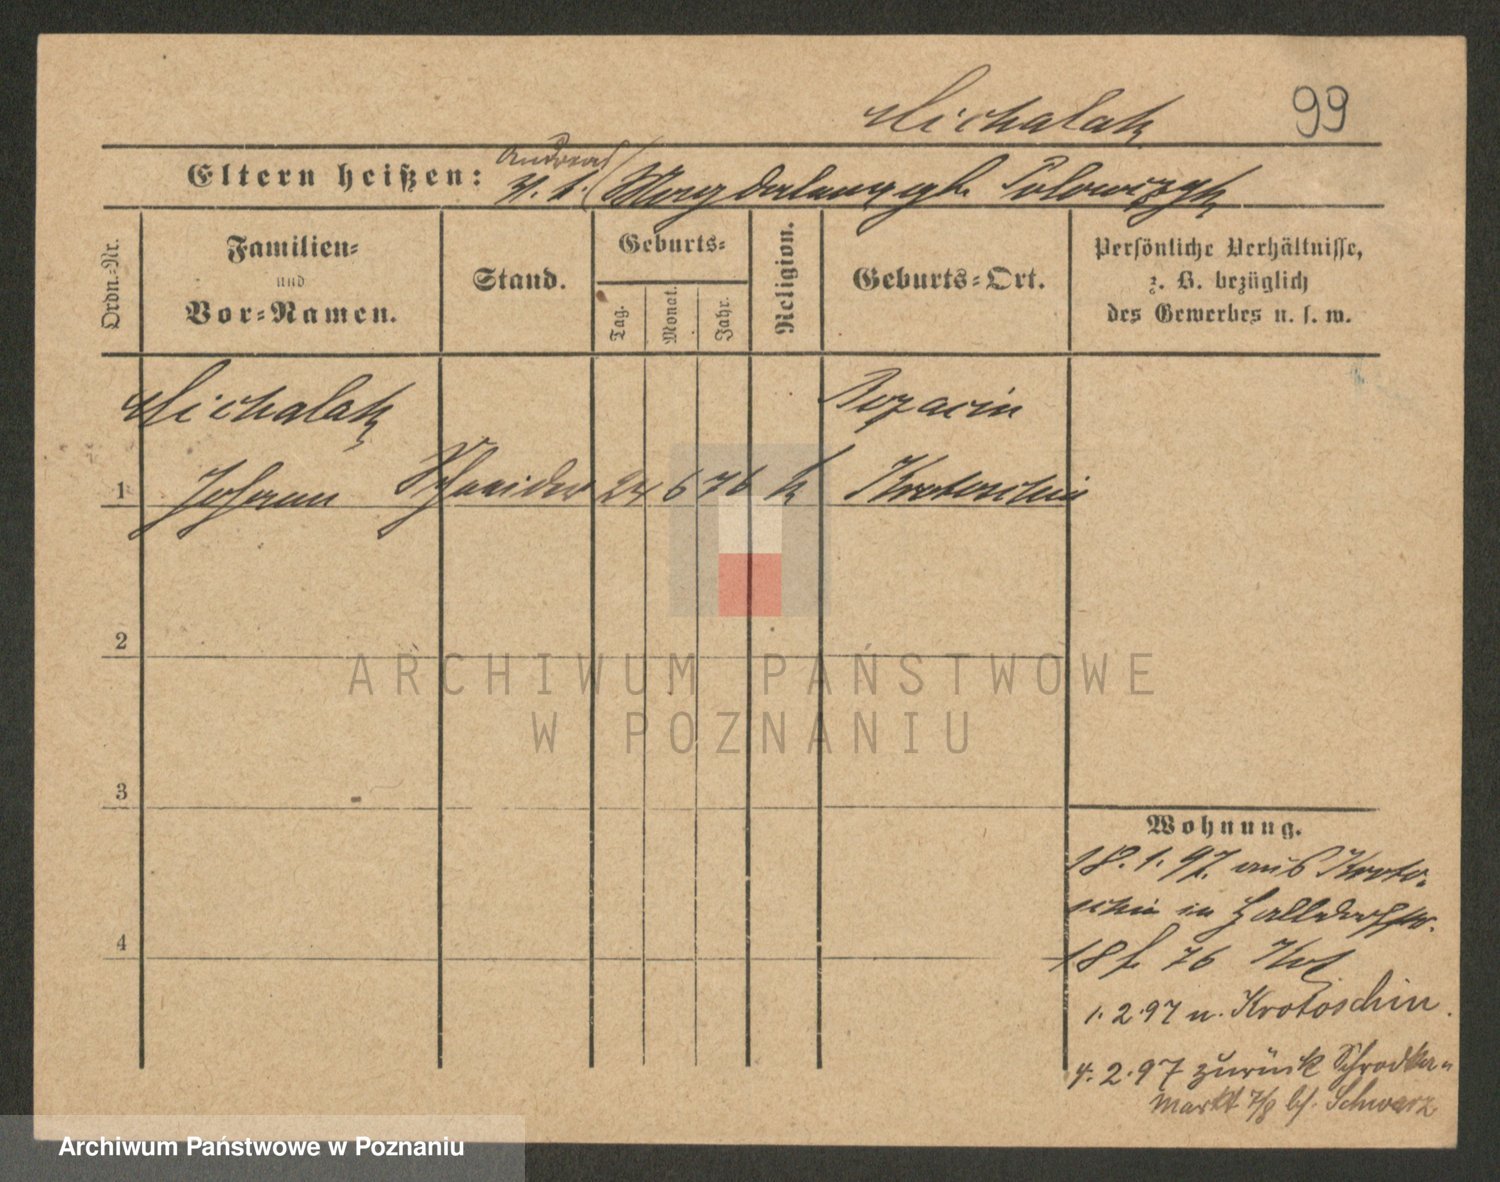 Michalak 99
Andreas
Eltern heißen: u. d. Magdalena geb. Polowczyk
Ordn.-Nr.
Familien-
und
Vor-Namen.
Stand.
Geburts-
Tag.
Monat.
Jahr.
Religion.
Geburts-Ort.
Persönliche Verhältnisse,
z. B. bezüglich
des Gewerbes u. s. w.
Michalak
1 Johann Schneider 24 6 76 k Krotoschin
2
3
4
Wohnung.
18.1.97. aus Kroto-
schin in Halldorfstr.
18 76
1.2.97 n. Krotoschin.
4.2.97 zurück Schrodka-
markt 7/8 bf. Schwarz
ARCHIWUM PAŃSTWOWE
W POZNANIU
Archiwum Państwowe w Poznaniu